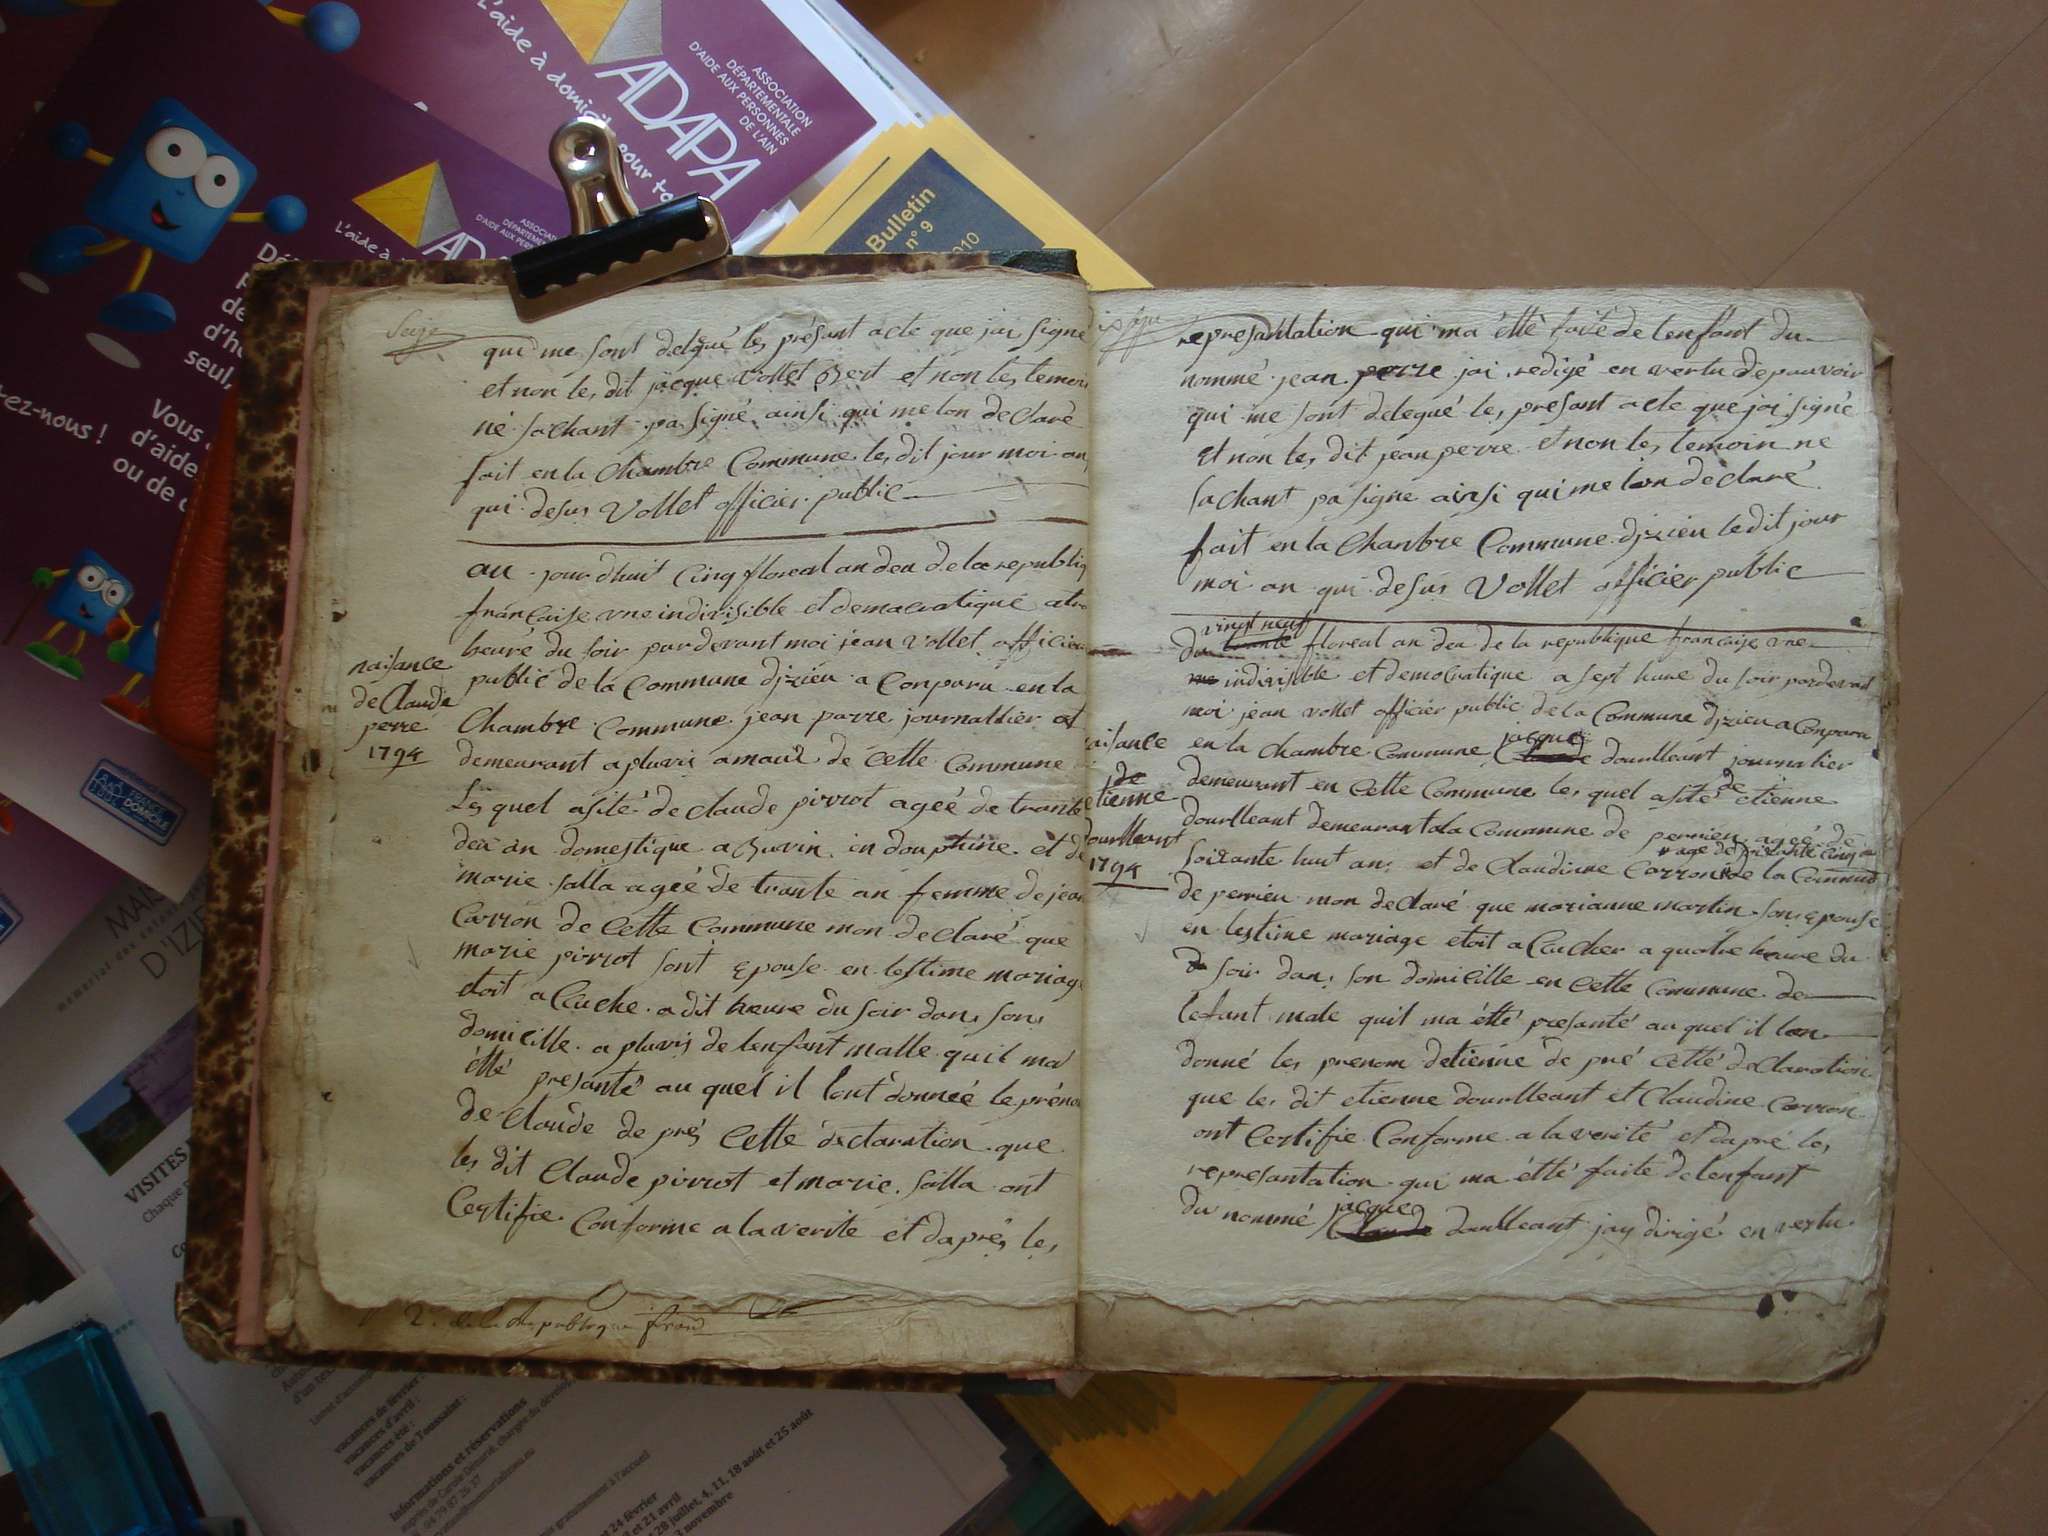 L'aide à domicile pour to
ADAPA
ASSOCIATION
DÉPARTEMENTALE
D'AIDE AUX PERSONNES
DE L'AIN
L'aide à
AD
Bulletin
n° 9
2010
Vous
d'aide
ou de
seul,
ez-nous !
FRANCE
DOMICILE
D'IZI
VISITES
Chaque
vacances de février
vacances d'avril :
vacances été :
vacances de Toussaint :
Informations et réservations
04 79 87 26 37
gratuitement à l'accueil
24 février
et 21 avril
28 juillet, 4, 11, 18 août et 25 août
novembre
Seize
qui me sont delegué les présant acte que jai signé
et non les dit jacque vollet Bert et non les temoin
né sachant pa signé ainsi qui me lon declaré
fait en la chambre Commune les dit jour moi an
qui desus Vollet officier public
au jourdhuit Cinq floreal an deu de la republiq
française vne indivisible et democratique atro
heure du soir pardevant moi jean vollet officier
public de la Commune dizieu a Conparu en la
Chambre Commune jean parre journallier et
demeurant a pluvis amaui de Cette Commune
Les quel asité de claude pirrot ageé de trante
deu an domestique a Buvin en douphine et de
marie salla ageé de trante an femme de jean
Carron de Cette Commune mon declaré que
marie pirrot sont epouse en lestime mariage
etoit a Cuche a dit heure du soir dans son
domicille a pluvis de lenfant malle quil ma
étté presanté au quel il lont donneé le préno
de Claude de prés Cette declaration que
les dit Claude pirrot et marie salla ont
Certifie Conforme a la verite et daprés les
naisance
de Claude
perre
1794
2e de la république franc
represantation qui ma étté faite de lenfant du
nommé jean perre jai redigé en vertu de pouvoir
qui me sont delegué les presant acte que jai signé
et non les dit jean perre et non les temoin ne
sachant pa signe ainsi qui me lon declaré
fait en la Chanbre Commune dizieu le dit jour
moi an qui desus Vollet officier public
vingt neuf
du trante floreal an deu de la republique française vne
indivisible et democratique a sept hure du soir pardevad
moi jean vollet officier public de la Commune dizieu a Conparu
jacque
en la chambre Commune Claude dourlleant journalier
demeurant en Cette Commune les quel asité de etienne
dourlleant demeurant a la Commune de perrieu ageé de
age de soixante cinq an
soixante huit an et de Claudinne Carron de la Commune
de perrieu mon declaré que marianne martin son epouse
en lestime mariage etoit a Cucher a quatre heure du
soir dans son domicille en Cette Commune de
lefant male quil ma étté presanté au quel il lon
donné les prenom detienne de pré Cetté declaration
que les dit etienne dourlleant et Claudine Carron
ont Certifie Conforme a la verité et dapré les
represantation qui ma étté faite de lenfant
jacque
du nommé Claude dourlleant jay dirigé en vertu
naisance
de
etienne
dourlleant
1794